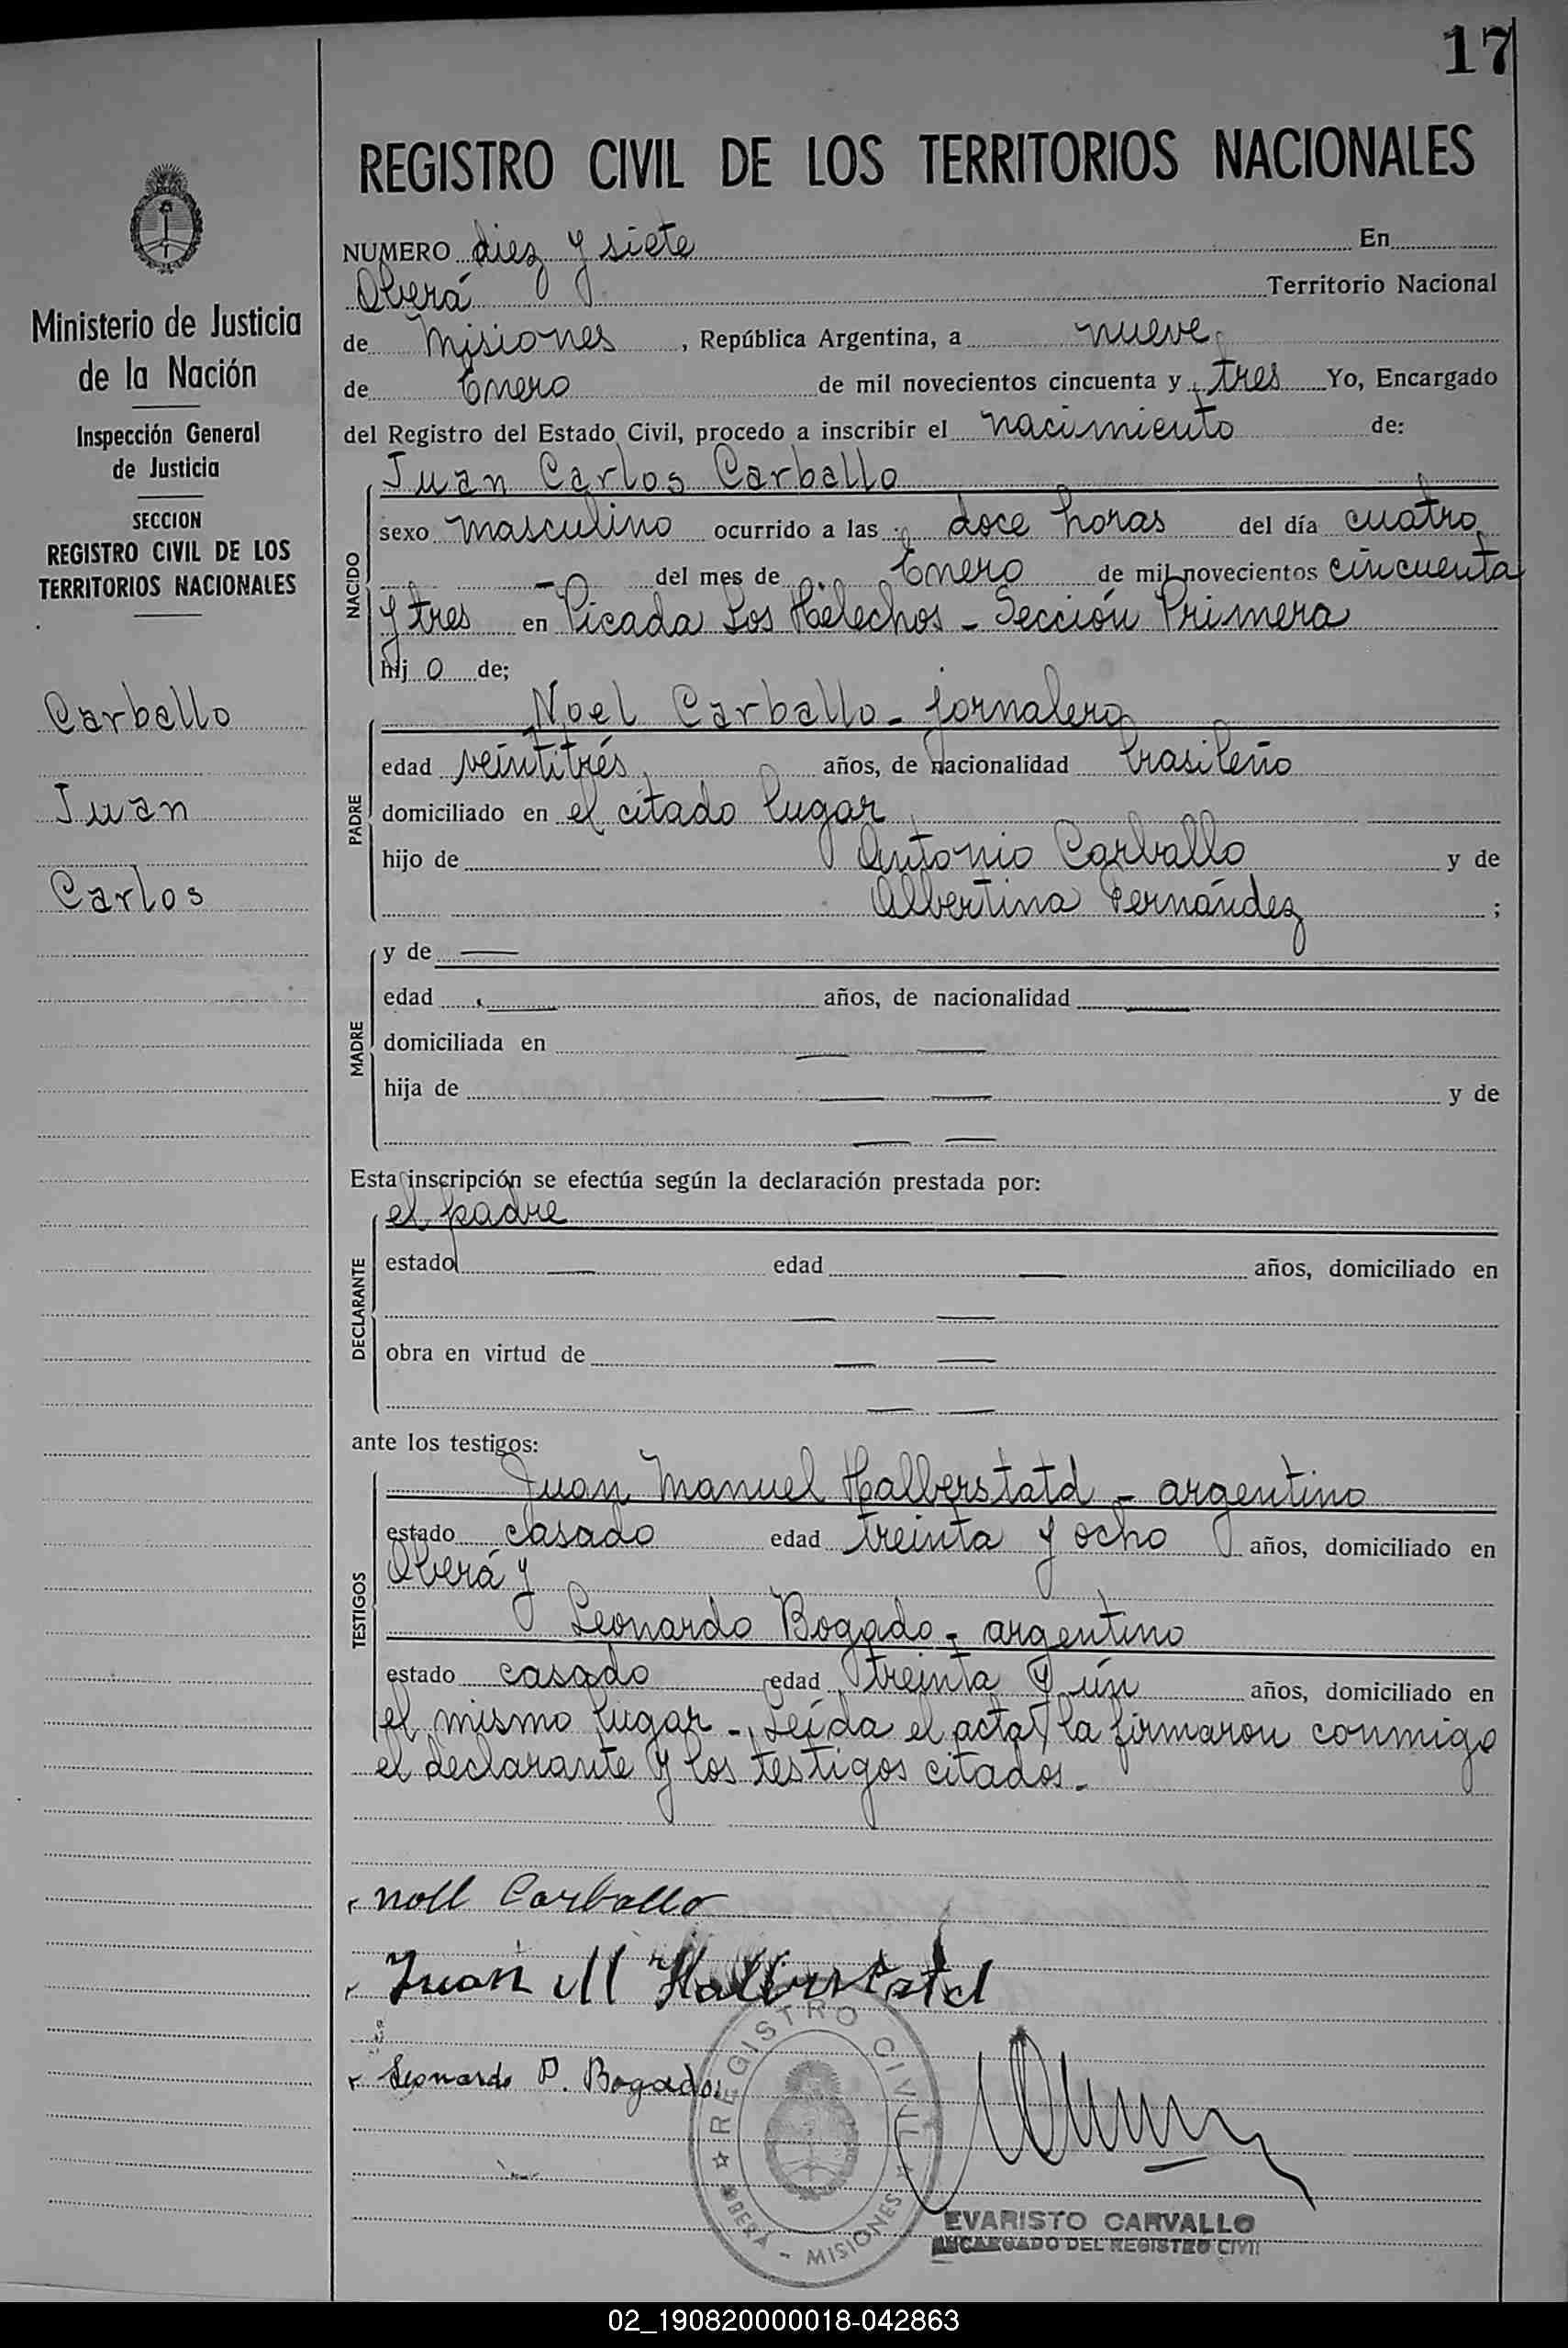 17
REGISTRO CIVIL DE LOS TERRITORIOS NACIONALES
Ministerio de Justicia
de la Nación
Inspección General
de Justicia
SECCION
REGISTRO CIVIL DE LOS
TERRITORIOS NACIONALES
Carballo
Juan
Carlos
NUMERO diez y siete En
Oberá Territorio Nacional
de Misiones, República Argentina, a nueve
de Enero de mil novecientos cincuenta y tres Yo, Encargado
del Registro del Estado Civil, procedo a inscribir el nacimiento de:
NACIDO
Juan Carlos Carballo
sexo masculino ocurrido a las doce horas del día cuatro
del mes de Enero de mil novecientos cincuenta
y tres en Picada Los Helechos - Sección Primera
hij o de;
PADRE
Noel Carballo - jornalero
edad veintitrés años, de nacionalidad brasileño
domiciliado en el citado lugar
hijo de Antonio Carballo y de
Albertina Fernández ;
MADRE
y de —
edad — años, de nacionalidad —
domiciliada en — —
hija de — — y de
— —
Esta inscripción se efectúa según la declaración prestada por:
DECLARANTE
el padre
estado — edad — años, domiciliado en
— —
obra en virtud de — —
— —
ante los testigos:
TESTIGOS
Juan Manuel Halberstatd - argentino
estado casado edad treinta y ocho años, domiciliado en
Oberá y
Leonardo Bogado - argentino
estado casado edad treinta y ún años, domiciliado en
el mismo lugar - Leída el acta, la firmaron conmigo
el declarante y los testigos citados.
Noll Carballo
Juan M Halberstatd
Leonardo P. Bogado
REGISTRO CIVIL
OBERÁ - MISIONES
EVARISTO CARVALLO
ENCARGADO DEL REGISTRO CIVIL
02_190820000018-042863